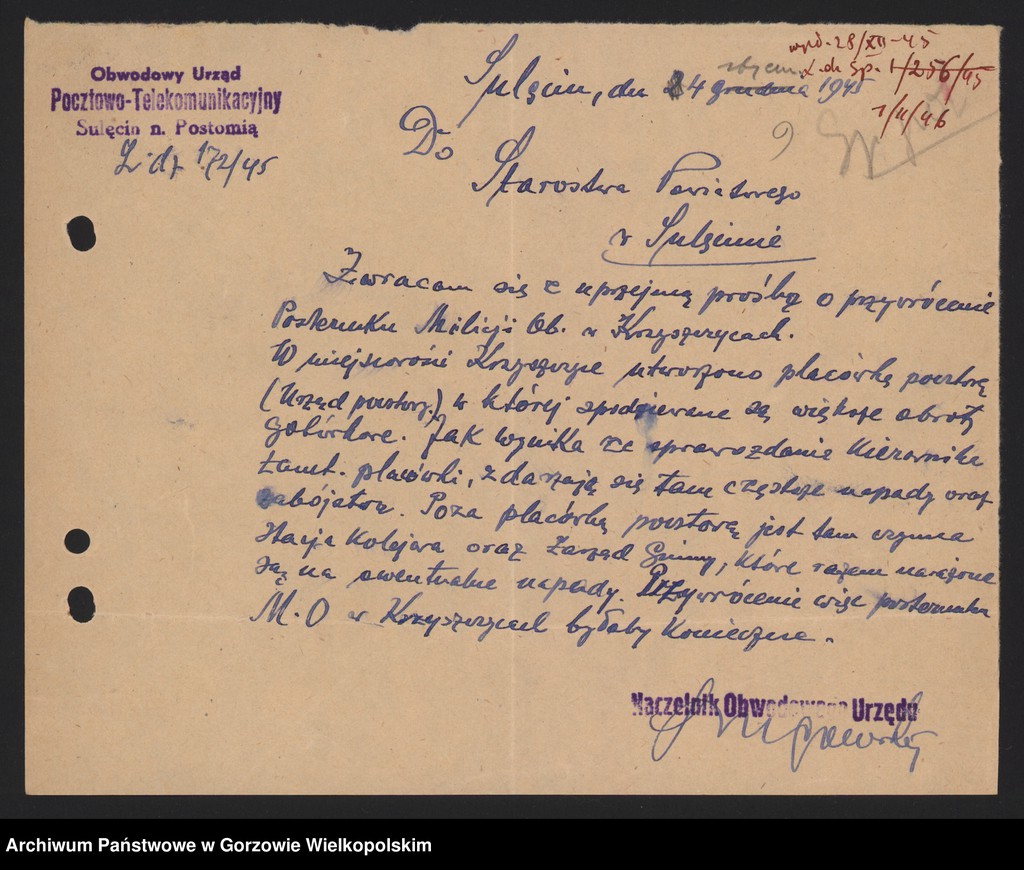 Obwodowy Urząd
Pocztowo-Telekomunikacyjny
Sulęcin n. Postomią
L. dz 172/45
wpł. 28/XII-45
L.dz Sp. 1/256/45
1/II/46
Sulęcin, dn 24 grudnia 1945
Do
Starostwa Powiatowego
w Sulęcinie
Zwracam się z uprzejmą prośbą o przywrócenie
Posterunku Milicji Ob. w Krzyszczycach.
W miejscowości Krzyszczyce utworzono placówkę pocztową
(Urząd pocztowy.) w której spodziewane są większe obroty
gotówkowe. Jak wynika ze sprawozdania Kierownika
tamt. placówki, zdarzają się tam częstsze napady oraz
zabójstwa. Poza placówką pocztową jest tam czynna
stacja Kolejowa oraz Zarząd Gminy, które razem narażone
są na ewentualne napady. Przywrócenie więc posterunku
M.O w Krzyszczycach byłoby Konieczne.
Naczelnik Obwodowego Urzędu
Archiwum Państwowe w Gorzowie Wielkopolskim